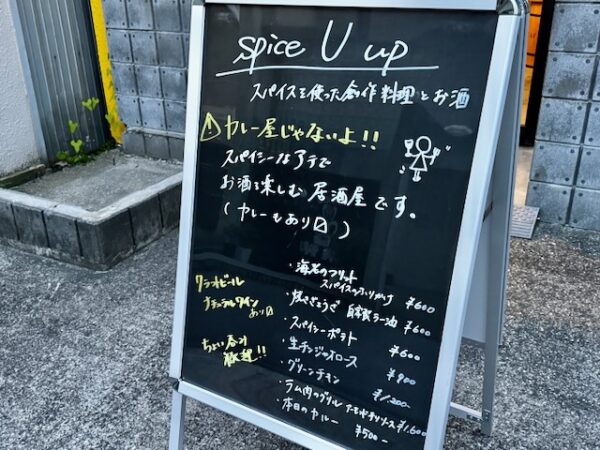 spice U up
スパイスを使った創作料理とお酒
⚠カレー屋じゃないよ!!
スパイシーなアテで
お酒を楽しむ居酒屋です。
(カレーもあり〼)
クラフトビール
ナチュラルワイン
あり〼
ちょい呑み
歓迎!!
・海老のフリット
スパイスのふりかけ ¥600
・焼ぎょうざ 自家製ラー油 ¥600
・スパイシーポテト ¥600
・生チンジャオロース ¥900
・グリーンチキン ¥1,200-
・ラム肉のグリル ¥1,600
・本日のカレー ¥500-